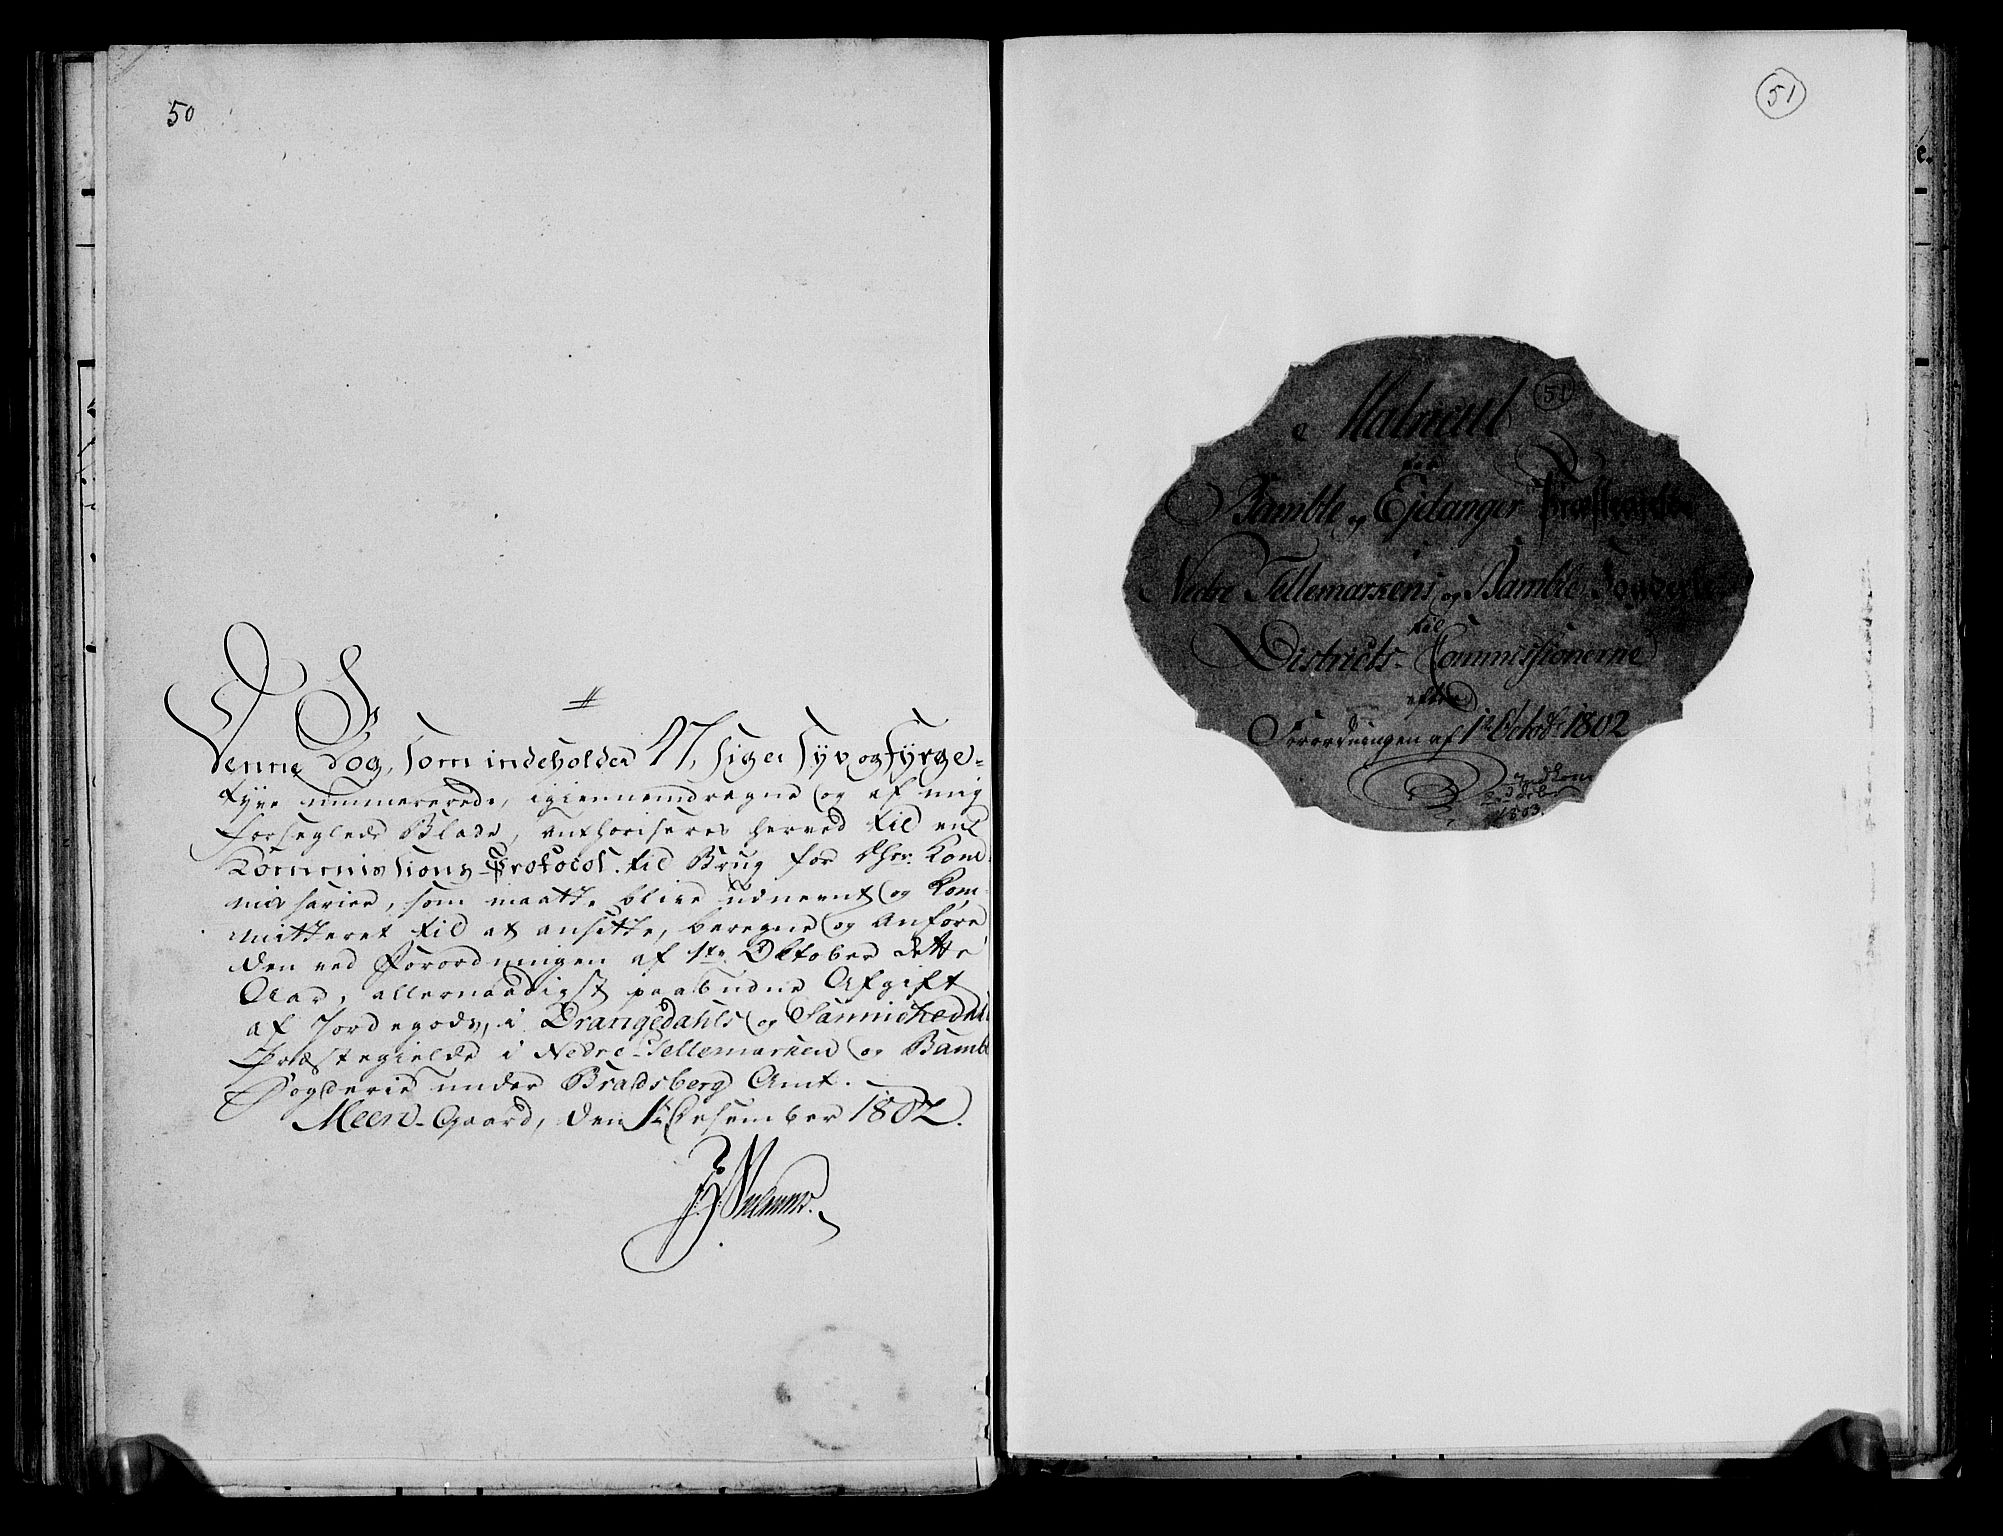 50
Denne Bog, som indeholder 47, siger syv og fyrge-
tyve nummererede, igiennemdragne og af mig
forseglede Blade, authoriseres herved til en
Kommissions-Protocol til Brug for Kom-
missarier, som maatte blive udnevnt og Kom-
mitteret til at ansætte, beregne og anføre
den ved Forordningen af 1te Oktober dette
Aar, allernaadigst paabudne Afgift
af Jordegods, i Drangedahls og Sannikedahls
Præstegielde i Nedre-Tellemarken og Bamble
Fogderie under Bradsberg Amt.
Meen-Gaard, den Desember 1802.
51
Matricul 51
for
Bamble og Ejdanger Præstegielde
i
Nedre Tellemarkens og Bamble Fogderie
til
Districts-Commissionerne
efter
Forordningen af 1te Octob. 1802
Indkom
1803.